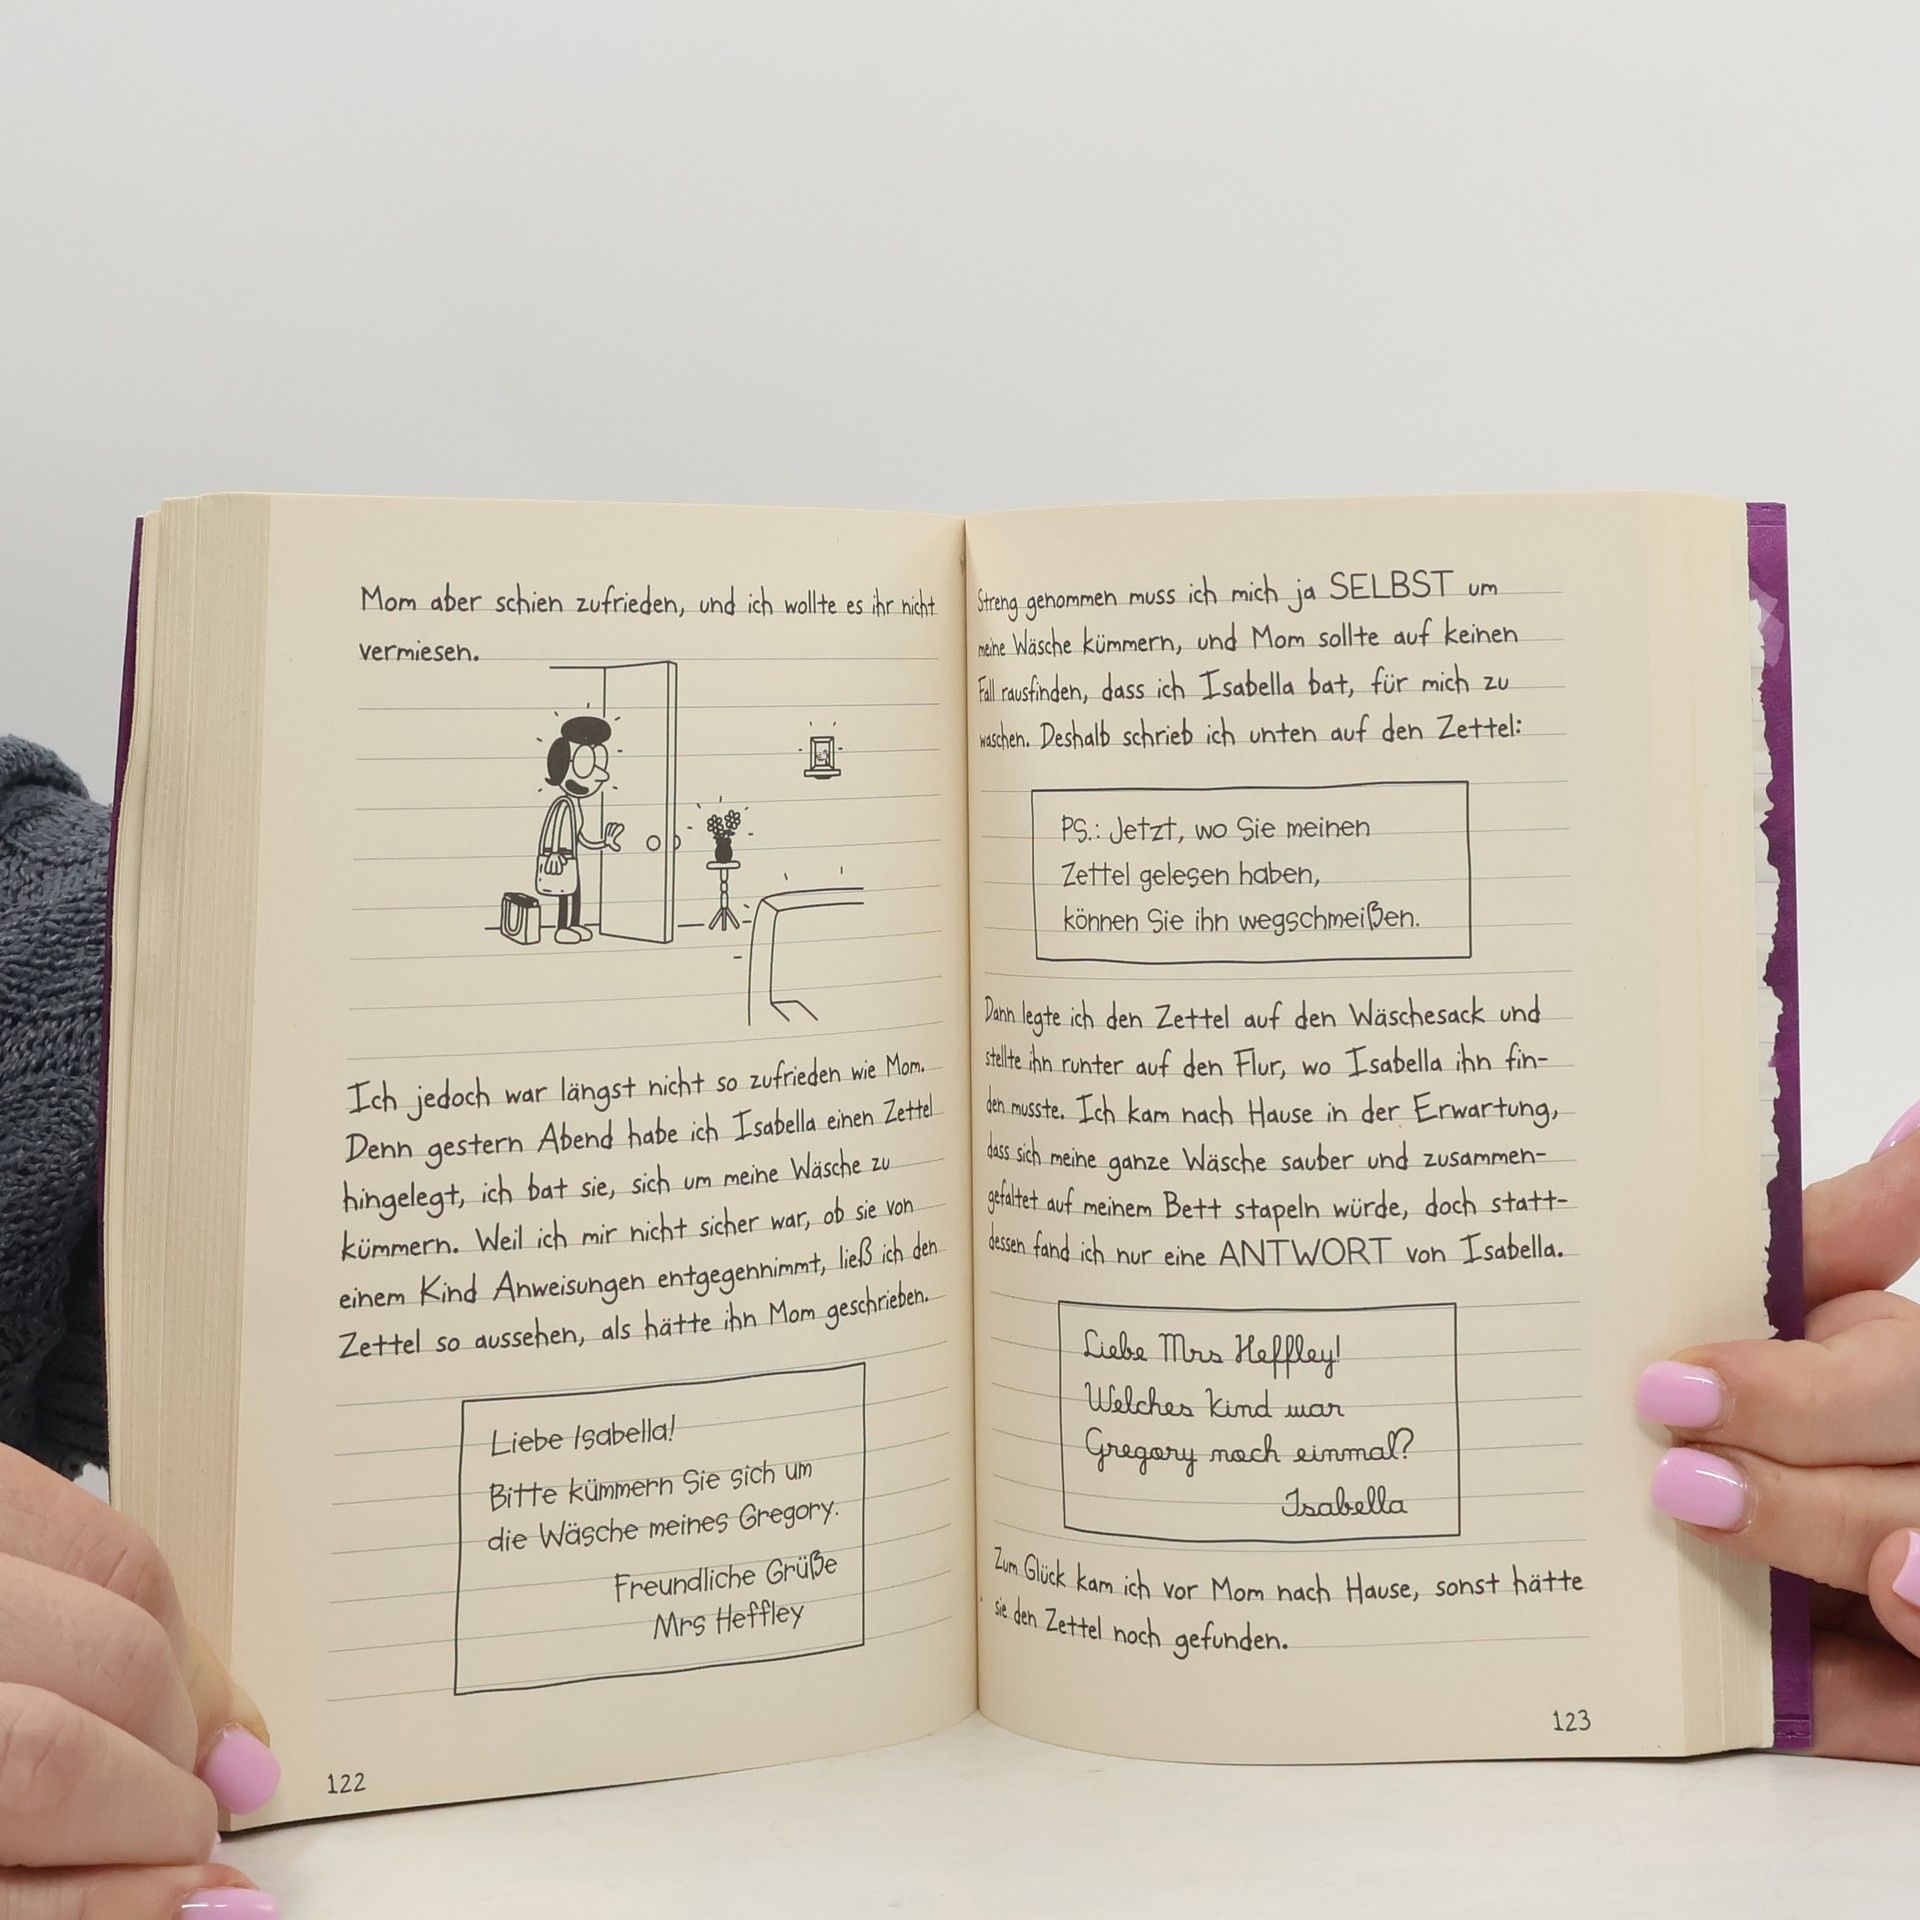 Mom aber schien zufrieden, und ich wollte es ihr nicht
vermiesen.
Ich jedoch war längst nicht so zufrieden wie Mom.
Denn gestern Abend habe ich Isabella einen Zettel
hingelegt, ich bat sie, sich um meine Wäsche zu
kümmern. Weil ich mir nicht sicher war, ob sie von
einem Kind Anweisungen entgegennimmt, ließ ich den
Zettel so aussehen, als hätte ihn Mom geschrieben.
Liebe Isabella!
Bitte kümmern Sie sich um
die Wäsche meines Gregory.
Freundliche Grüße
Mrs Heffley
122
Streng genommen muss ich mich ja SELBST um
meine Wäsche kümmern, und Mom sollte auf keinen
Fall rausfinden, dass ich Isabella bat, für mich zu
waschen. Deshalb schrieb ich unten auf den Zettel:
PS.: Jetzt, wo Sie meinen
Zettel gelesen haben,
können Sie ihn wegschmeißen.
Dann legte ich den Zettel auf den Wäschesack und
stellte ihn runter auf den Flur, wo Isabella ihn fin-
den musste. Ich kam nach Hause in der Erwartung,
dass sich meine ganze Wäsche sauber und zusammen-
gefaltet auf meinem Bett stapeln würde, doch statt-
dessen fand ich nur eine ANTWORT von Isabella.
Liebe Mrs Heffley!
Welches Kind war
Gregory noch einmal?
Isabella
Zum Glück kam ich vor Mom nach Hause, sonst hätte
sie den Zettel noch gefunden.
123